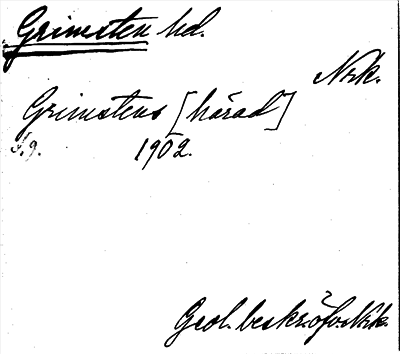 Grimsten hd.
Nrk.
Grimstens [härad]
S. 9. 1902.
Geol. beskr. öfv. Nrk.